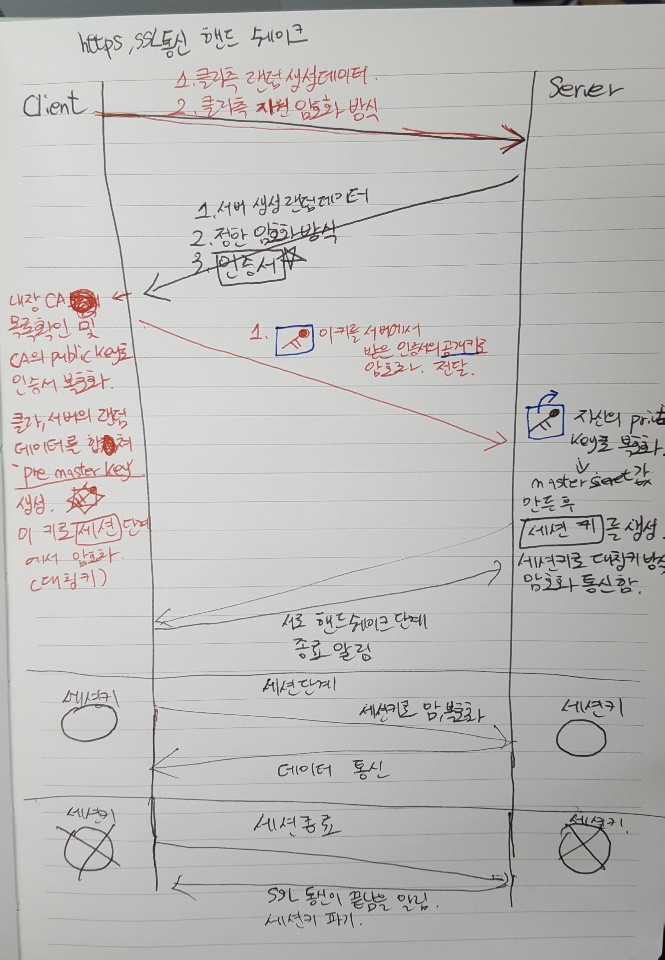 https, SSL통신 핸드 쉐이크
Client
Server
1. 클라측 랜덤 생성데이터.
2. 클라측 지원 암호화 방식
1. 서버 생성 랜덤데이터
2. 정한 암호화 방식
3. 인증서
내장 CA
목록확인 및
CA의 public key로
인증서 복호화.
1. 이키를 서버에서
받은 인증서의 공개키로
암호화. 전달.
클라, 서버의 랜덤
데이터를 합쳐
pre master key
생성.
이 키로 세션 단계
에서 암호화.
(대칭키)
자신의
key로 복호화.
master secret값
만든후
세션 키를 생성.
세션키로 대칭키 방식
암호화 통신함.
서로 핸드쉐이크 단계
종료 알림
세션단계
세션키
세션키로 암,복호화
세션키
데이터 통신
세션키
세션종료
세션키.
SSL 통신이 끝남을 알림.
세션키 파기.